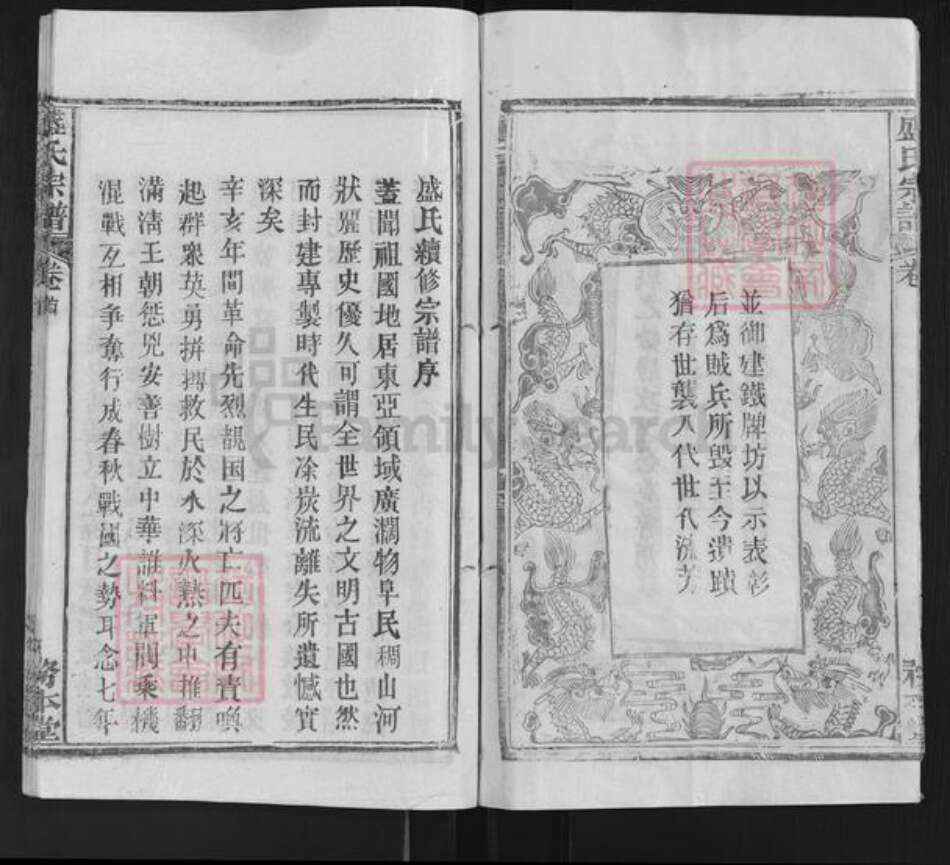 盛氏宗譜
卷
並御建鐵牌坊以示表彰
后爲賊兵所毀至今遺蹟
猶存世襲八代世代流芳
盛氏續修宗譜序
蓋聞祖國地居東亞領域廣濶物阜民稠山河
狀麗歷史優久可謂全世界之文明古國也然
而封建專製時代生民凃炭流離失所遺憾實
深矣
辛亥年間革命先烈覩国之將亡匹夫有責喚
起群衆英勇拼搏救民於水深火熱之中推翻
滿淸王朝懲兇安善樹立中華誰料軍閥乘機
混戰互相爭奪行成春秋戰國之勢耳念七年
盛氏宗譜
卷首
堂
FamilySearch